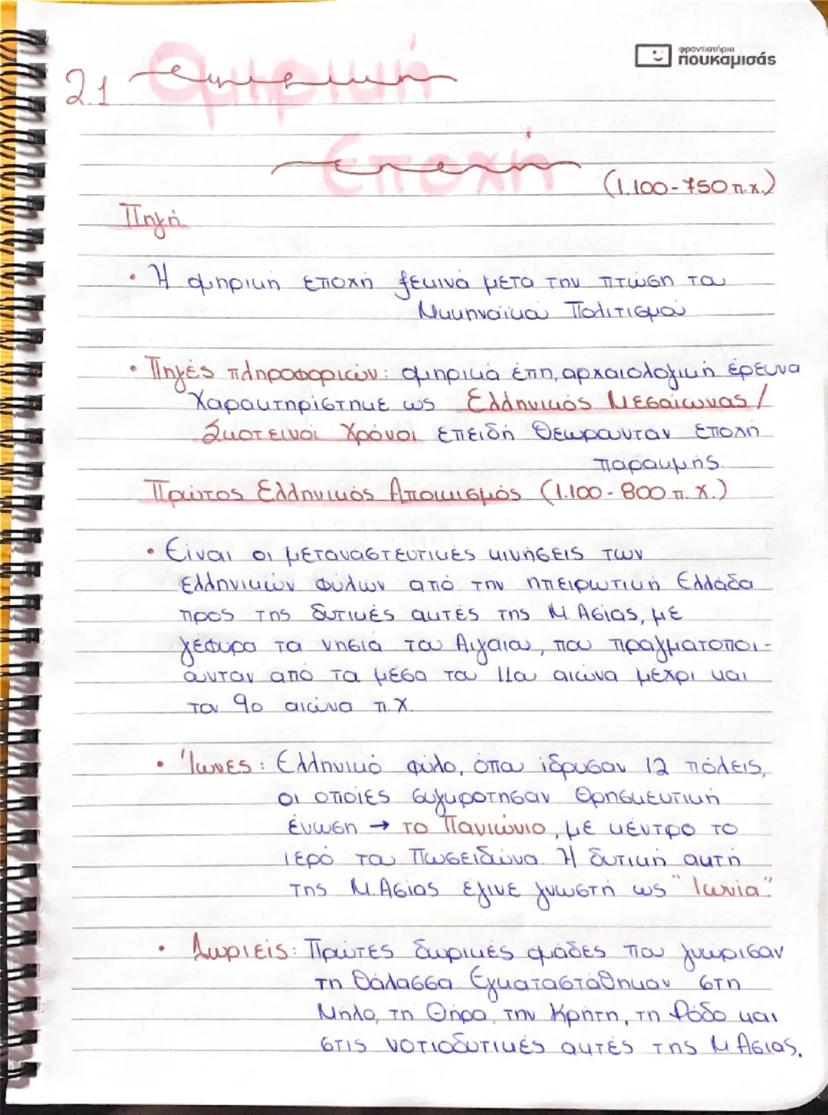 φροντιστήρια
πουκαμισάς
2.1 Ομηρική
Εποχή
(1.100-750 π.χ.)
Πηγή
• Η ομηρική εποχή ξεκινά μετα την πτώση του
Μυκηναϊκού Πολιτισμού
• Πηγές πληροφοριών: ομηρικά έπη, αρχαιολογική έρευνα
Χαρακτηρίστηκε ως Ελληνικός Μεσαίωνας /
Σκοτεινοί Χρόνοι επειδή Θεωρούνταν εποχή
παρακμής.
Πρώτος Ελληνικός Αποικισμός (1.100-800 π.Χ.)
• Είναι οι μεταναστευτικές κινήσεις των
ελληνικών φύλων από την ηπειρωτική Ελλάδα
προς της δυτικές ακτές της Μ. Ασίας, με
γέφυρα τα νησιά του Αιγαίου, που πραγματοποι-
ούνταν από τα μέσα του 11ου αιώνα μέχρι και
τον 9ο αιώνα π.Χ.
• Ίωνες: Ελληνικό φύλο, όπου ίδρυσαν 12 πόλεις,
οι οποίες συγκρότησαν Θρησκευτική
ένωση → το Πανιώνιο, με κέντρο το
ιερό του Ποσειδώνα. Η δυτική ακτή
της Μ. Ασίας έγινε γνωστή ως "Ιωνία"
• Δωριείς: Πρώτες δωρικές ομάδες που γνώρισαν
τη Θάλασσα Εγκαταστάθηκαν στη
Μήλο, τη Θήρα, την Κρήτη, τη Ρόδο και
στις νοτιοδυτικές ακτές της Μ. Ασίας.